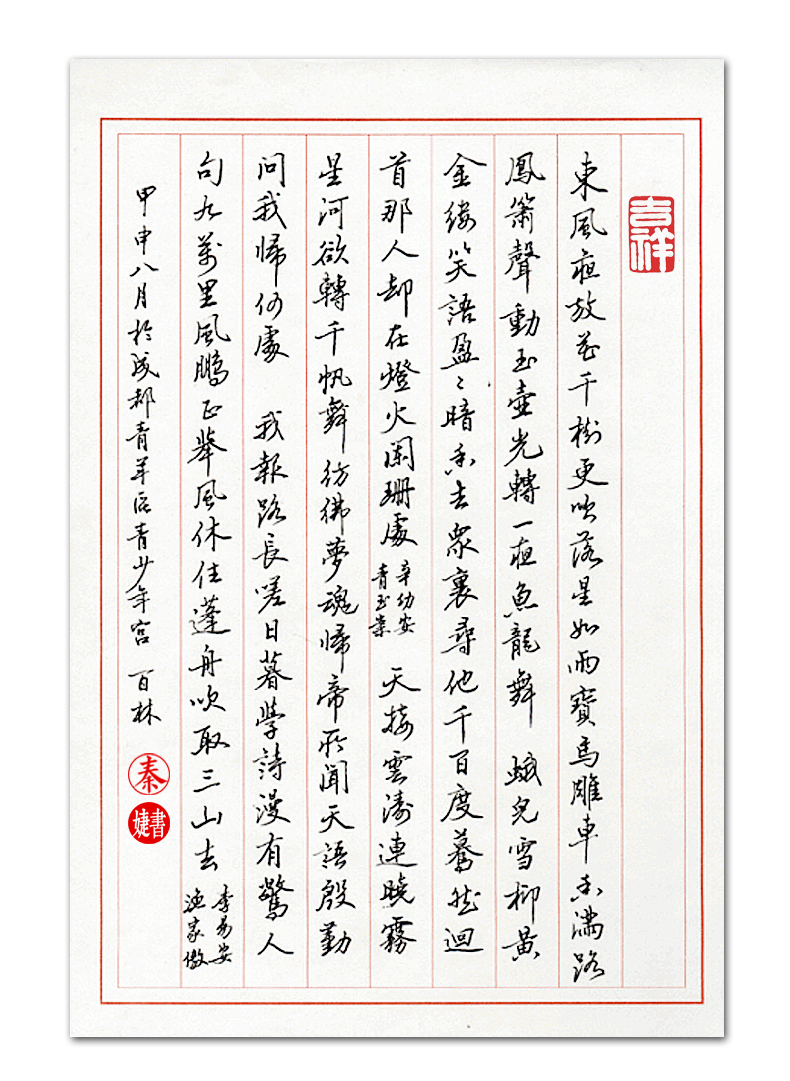 吉祥
東風夜放花千樹更吹落星如雨寶馬雕車香滿路
鳳簫聲動玉壺光轉一夜魚龍舞 蛾兒雪柳黃
金縷笑語盈〻暗香去眾裏尋他千百度驀然迴
首那人却在燈火闌珊處 辛幼安 青玉案 天接雲濤連曉霧
星河欲轉千帆舞彷彿夢魂歸帝所聞天語殷勤
問我歸何處 我報路長嗟日暮學詩漫有驚人
句九萬里風鵬正舉風休住蓬舟吹取三山去 李易安 漁家傲
甲申八月於成都青羊區青少年宮 百林
秦
婕書